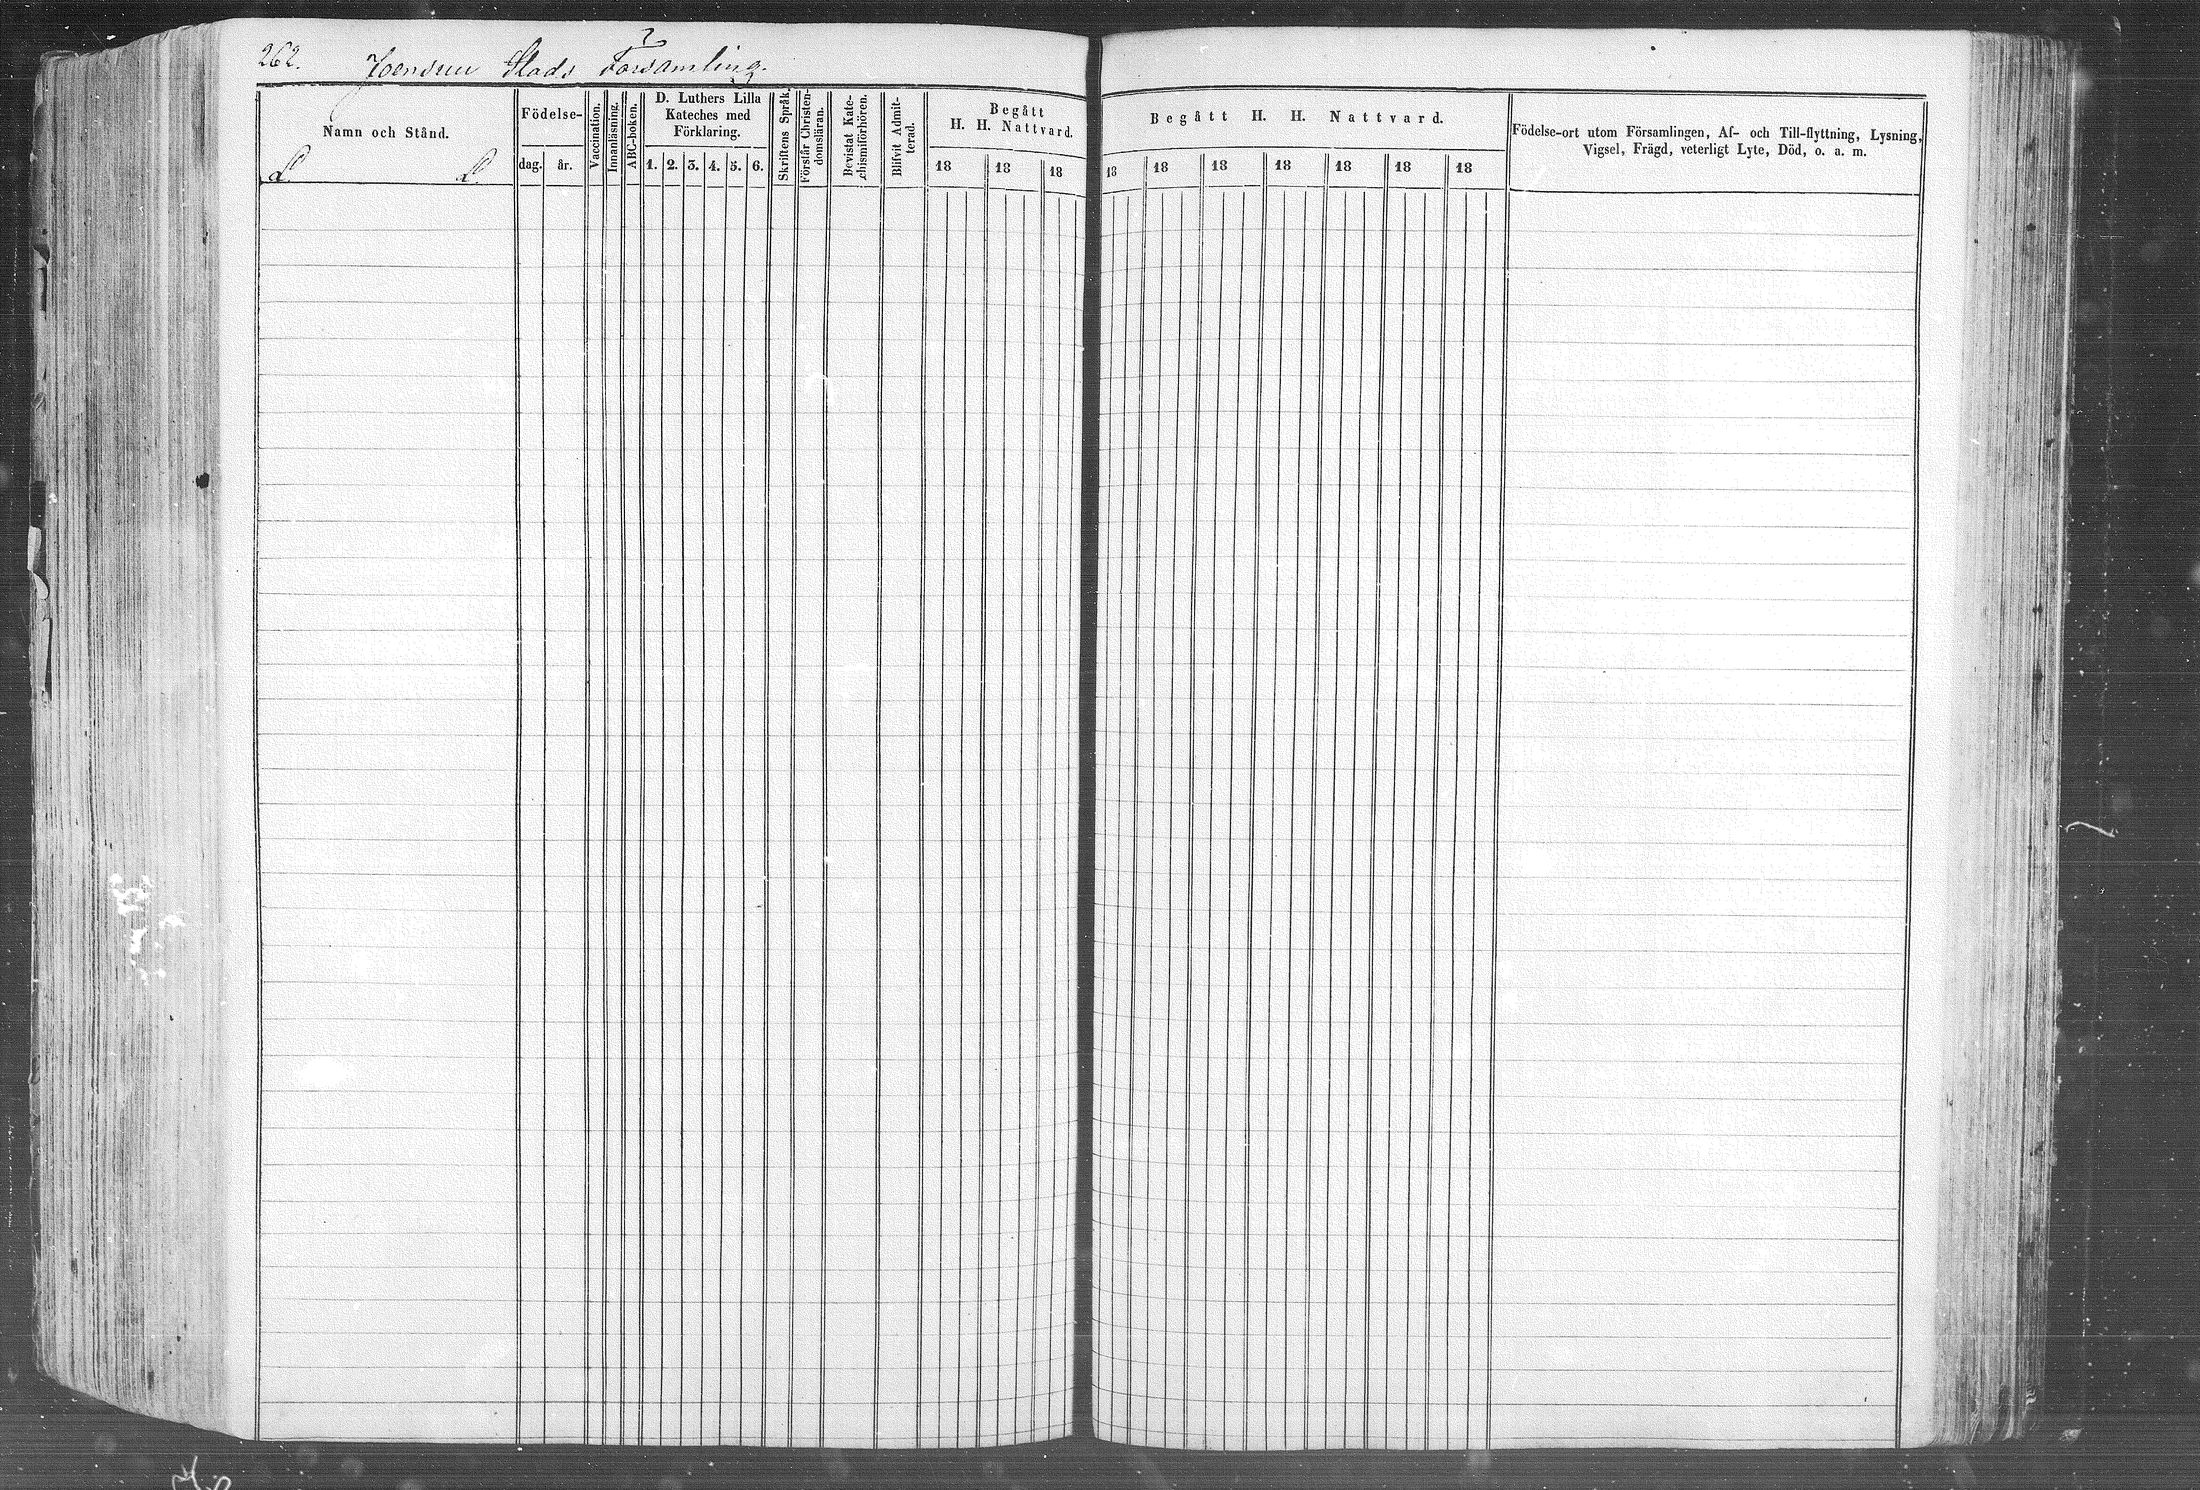 262. Joensuu Stads Församling.
Namn och Stånd.
L. L.
Födelse-
dag. år.
Vaccination.
Innanläsning.
ABC-boken.
D. Luthers Lilla
Kateches med
Förklaring.
1. 2. 3. 4. 5. 6.
Skriftens Språk.
Förstår Christen-
domsläran.
Bevistat Kate-
chismiförhören.
Blifvit Admit-
terad.
Begått
H. H. Nattvard.
18 18 18
Begått H. H. Nattvard.
18 18 18 18 18 18 18
Födelse-ort utom Församlingen, Af- och Till-flyttning, Lysning,
Vigsel, Frägd, veterligt Lyte, Död, o. a. m.